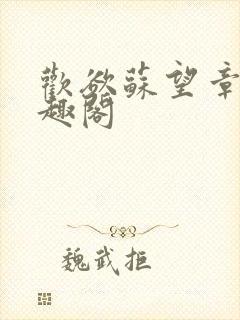 歡欲蘇望章
趣閣
魏武拒